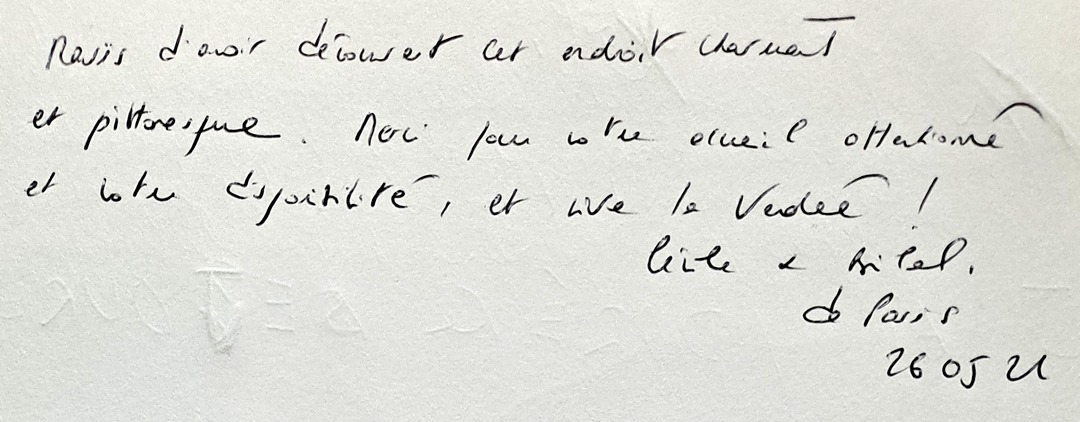 Ravis d'avoir découvert cet endroit charmant
et pittoresque. Merci pour votre accueil attentionné
et votre disponibilité, et vive la Vendée !
Cécile & Bilal.
de Paris
26 05 21